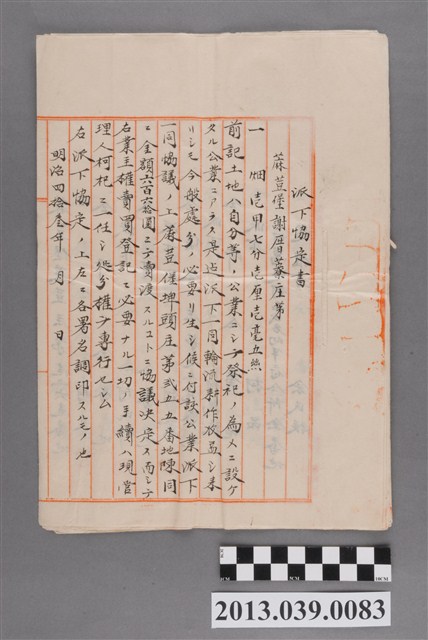 派下協定書
蔴荳堡謝厝藔庄第
一 畑壱甲七分壱厘壱毫五絲
前記土地ハ自分等ノ公業ニシテ祭祀ノ為メニ設ケ
タル公業ニアラス是迄派下一同輪流耕作收益シ来
リシモ今般處分ノ必要ヲ生シ候ニ付該公業派下
一同協議ノ上蔴荳堡埤頭庄第弐五五番地陳同
ニ金額六百六拾圓ニテ賣渡スルコトニ協議決定ス而シテ
右業主權賣買登記ニ必要ナル一切ノ手續ハ現管
理人柯杞ニ一任シ処分權ヲ專行セシム
右派下協定ノ上左ニ各署名調印スルモノ也
明治四拾叁年 月 日
0CM 5CM 10CM
2013.039.0083